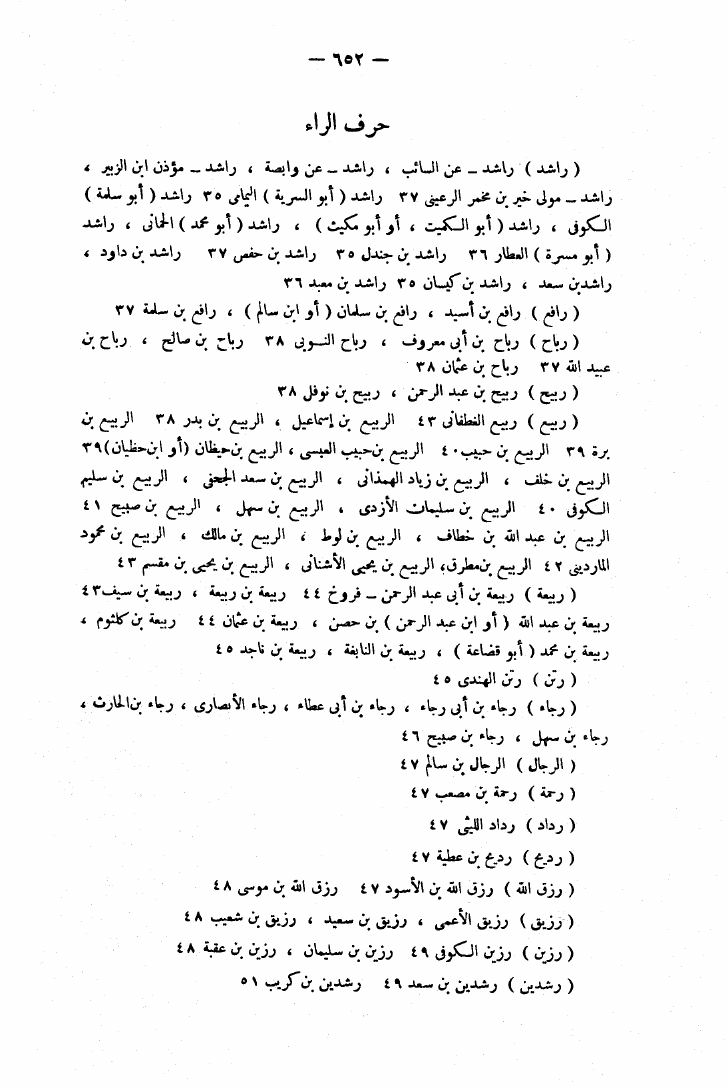 — ٦٥٢ —
حرف الراء
( راشد ) راشد – عن السائب ، راشد – عن وابصة ، راشد – مؤذن ابن الزبير ،
راشد – مولى خير بن مخمر الرعينى ٣٧ راشد ( أبو السرية ) اليمامى ٣٥ راشد ( أبو سلمة )
الكوفى ، راشد ( أبو الكميت ، أو أبو مكيث ) ، راشد ( أبو محمد ) الحمانى ، راشد
( أبو مسرة ) العطار ٣٦ راشد بن جندل ٣٥ راشد بن حفص ٣٧ راشد بن داود ،
راشد بن سعد ، راشد بن كيسان ٣٥ راشد بن معبد ٣٦
( رافع ) رافع بن أسيد ، رافع بن سلمان ( أو ابن سالم ) ، رافع بن سلمة ٣٧
( رباح ) رباح بن أبى معروف ، رباح النوبى ٣٨ رباح بن صالح ، رباح بن
عبيد الله ٣٧ رباح بن عثمان ٣٨
( ربيح ) ربيح بن عبد الرحمن ، ربيح بن نوفل ٣٨
( ربيع ) ربيع الغطفانى ٤٣ الربيع بن إسماعيل ، الربيع بن بدر ٣٨ الربيع بن
برة ٣٩ الربيع بن حبيب ٤٠ الربيع بن حبيب العبسى ، الربيع بن حيظان (أو ابن حظيان) ٣٩
الربيع بن خلف ، الربيع بن زياد الهمذانى ، الربيع بن سعد الجعفى ، الربيع بن سليم
الكوفى ٤٠ الربيع بن سليمان الأزدى ، الربيع بن سهل ، الربيع بن صبيح ٤١
الربيع بن عبد الله بن خطاف ، الربيع بن لوط ، الربيع بن مالك ، الربيع بن محمود
الماردينى ٤٢ الربيع بن مطرق، الربيع بن يحيى الأشنانى ، الربيع بن يحيى بن مقسم ٤٣
( ربيعة ) ربيعة بن أبى عبد الرحمن – فروخ ٤٤ ربيعة بن ربيعة ، ربيعة بن سيف ٤٣
ربيعة بن عبد الله ( أو ابن عبد الرحمن ) بن حصن ، ربيعة بن عثمان ٤٤ ربيعة بن كلثوم ،
ربيعة بن محمد ( أبو قضاعة ) ، ربيعة بن النابغة ، ربيعة بن ناجد ٤٥
( رتن ) رتن الهندى ٤٥
( رجاء ) رجاء بن أبى رجاء ، رجاء بن أبى عطاء ، رجاء الأنصارى ، رجاء بن الحارث ،
رجاء بن سهل ، رجاء بن صبيح ٤٦
( الرجال ) الرجال بن سالم ٤٧
( رحمة ) رحمة بن مصعب ٤٧
( رداد ) رداد الليثى ٤٧
( رديح ) رديح بن عطية ٤٧
( رزق الله ) رزق الله بن الأسود ٤٧ رزق الله بن موسى ٤٨
( رزيق ) رزيق الأعمى ، رزيق بن سعيد ، رزيق بن شعيب ٤٨
( رزين ) رزين الكوفى ٤٩ رزين بن سليمان ، رزين بن عقبة ٤٨
( رشدين ) رشدين بن سعد ٤٩ رشدين بن كريب ٥١